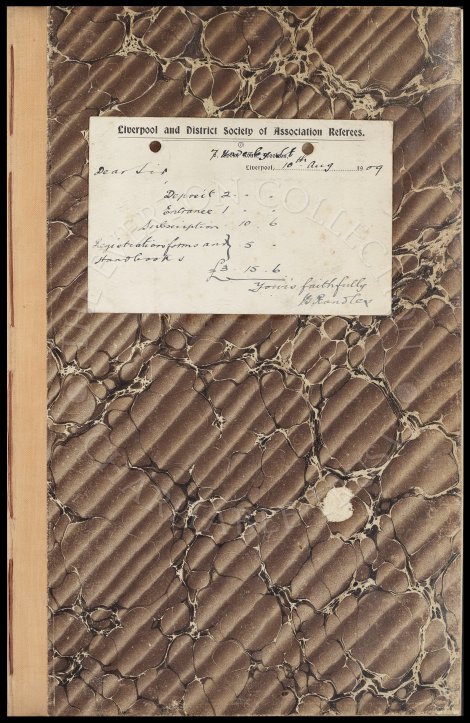 Liverpool and District Society of Association Referees.
7. St
Liverpool, 10th Aug 1909
Dear Sir
Deposit 2 - -
Entrance 1 - -
Subscription 10 . 6
Registration forms and } 5 -
Handbooks
£3 . 15 . 6
Yours faithfully